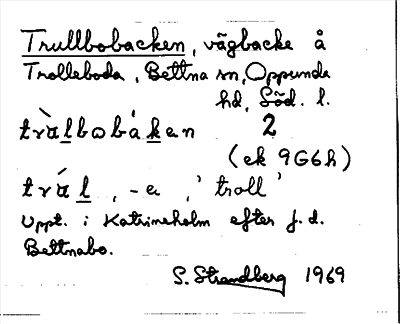 Trullbobacken, vägbacke å
Trolleboda, Bettna sn, Oppunda
hd, Söd. l.
tràlbωbákan 2
(ek 9G6h)
trál, -a, 'troll'
Uppt. i Katrineholm efter f.d.
Bettnabo.
S. Strandberg 1969